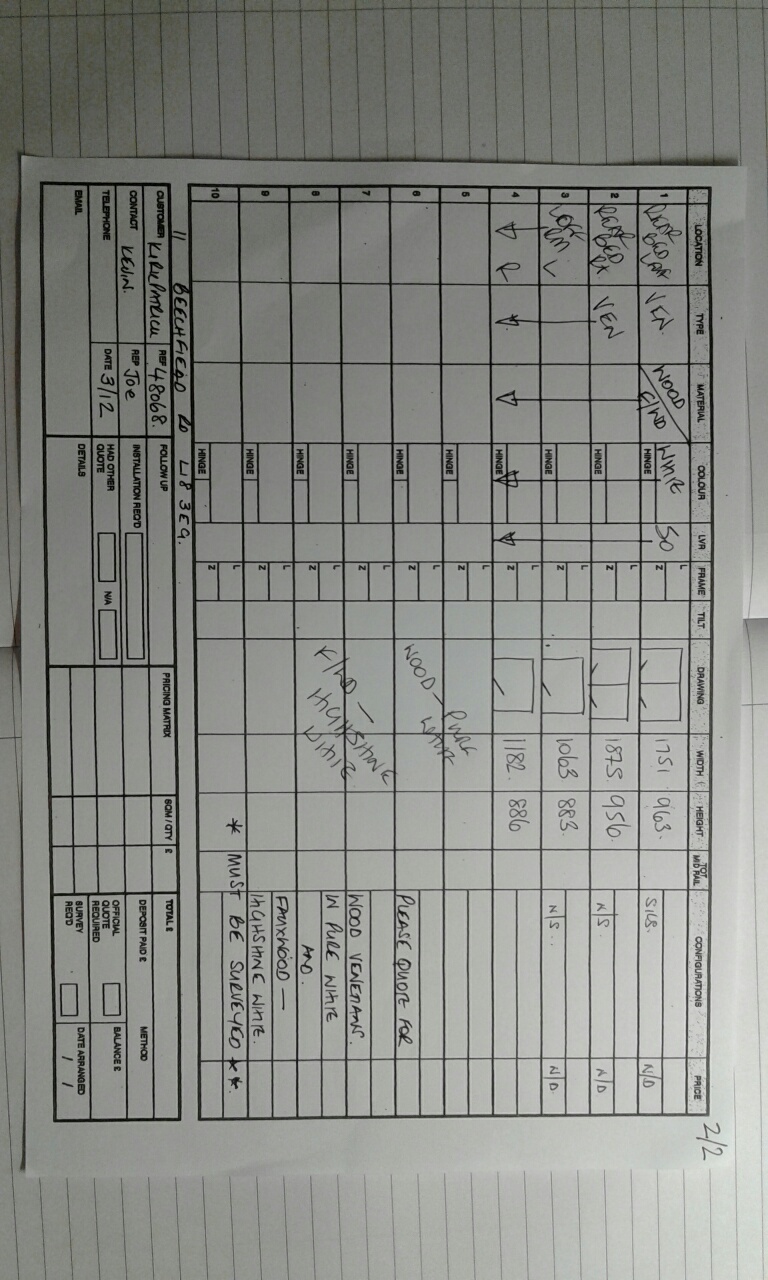 2/2
LOCATION TYPE MATERIAL COLOUR LVR FRAME TILT DRAWING WIDTH HEIGHT TOT MID RAIL CONFIGURATIONS PRICE
1 REAR BED VEN. WOOD F/WD WHITE 50 L 1751 963. SILS. N/D
HINGE Z
2 BED VEN L 1875. 956. N/S. N/D
HINGE Z
3 RM L L 1063 883. N/S.. N/D
HINGE Z
4 R L 1182. 886
HINGE Z
5 L
HINGE Z WOOD - PURE WHITE
6 L PLEASE QUOTE FOR
HINGE Z
7 L WOOD VENETIANS.
HINGE Z F/WD - HIGHSHINE WHITE IN PURE WHITE
8 L AND.
HINGE Z
9 L FAUXWOOD -
HINGE Z HIGHSHINE WHITE.
10 L * MUST BE SURVEYED **.
HINGE Z
11 BEECHFIELD RD L18 3EG.
CUSTOMER KIRKPATRICK REF 48068. FOLLOW UP PRICING MATRIX SQM / QTY £ TOTAL £
CONTACT KEVIN. REP JOE INSTALLATION REQ'D DEPOSIT PAID £ METHOD
TELEPHONE DATE 3/12 HAD OTHER QUOTE N/A OFFICIAL QUOTE REQUIRED BALANCE £
EMAIL DETAILS SURVEY REQ'D DATE ARRANGED / /